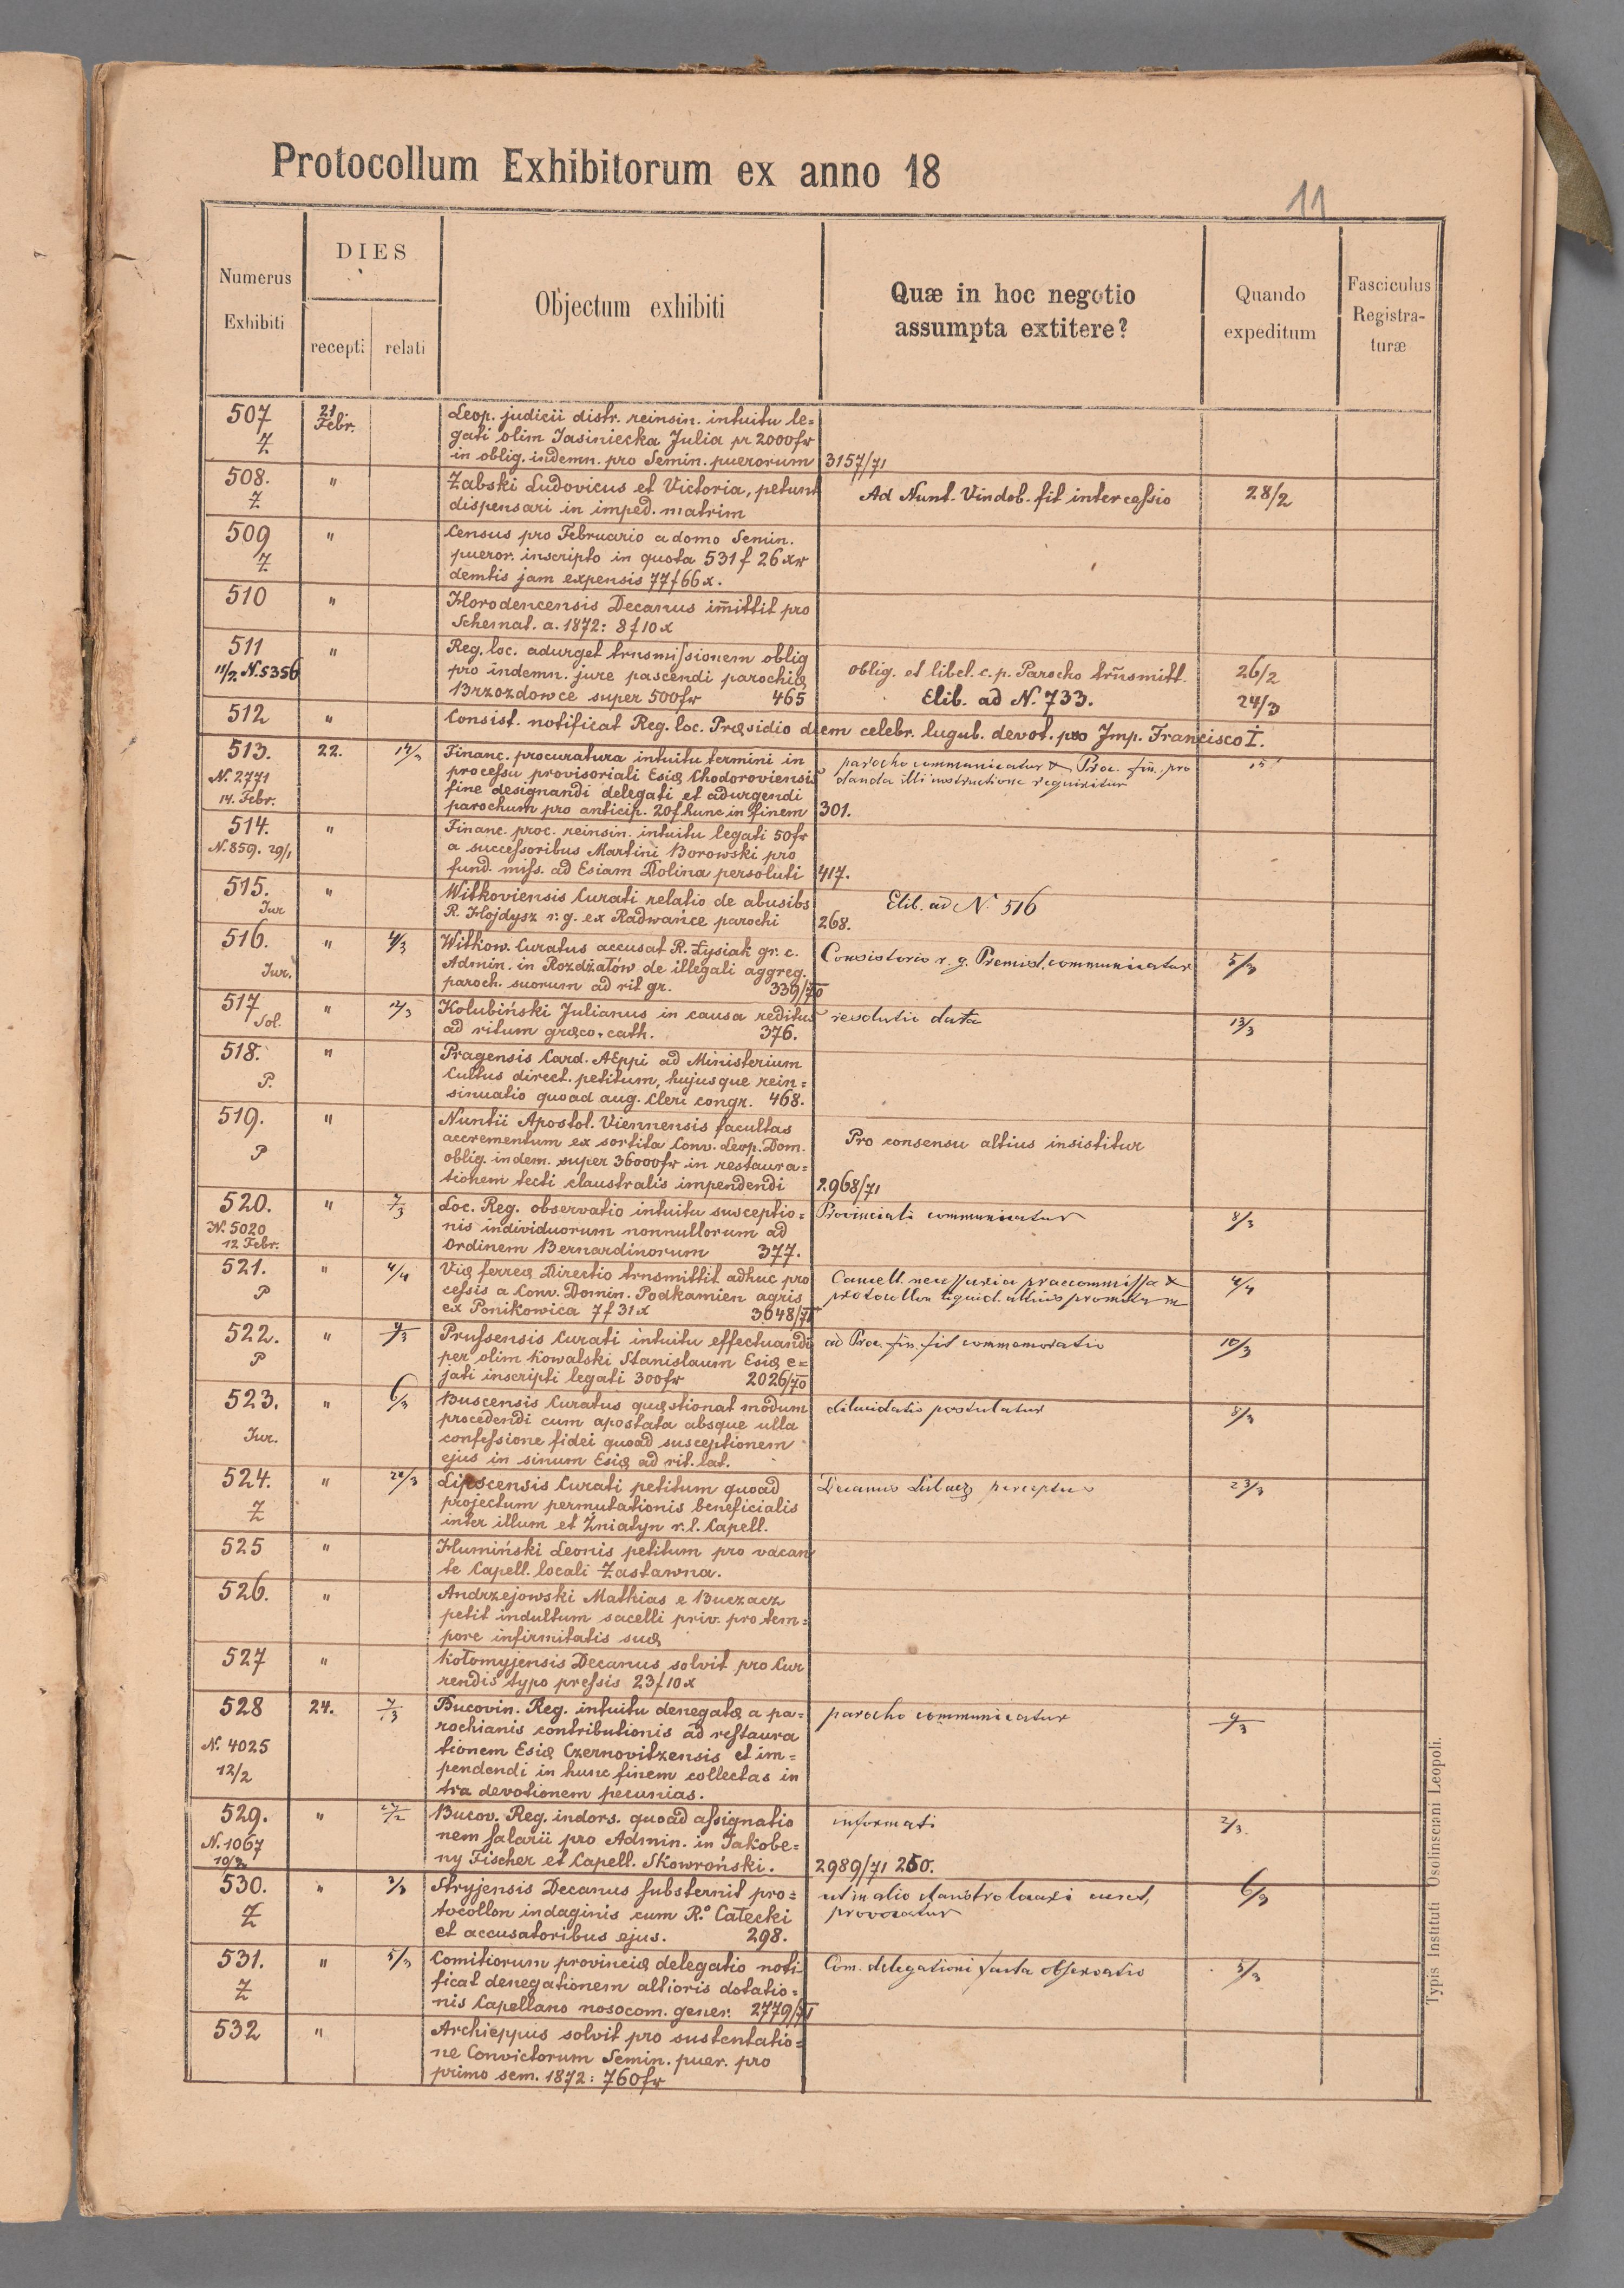 Protocollum Exhibitorum ex anno 18
11
Numerus Exhibiti
DIES
recepti
relati
Objectum exhibiti
Quæ in hoc negotio assumpta extitere?
Quando expeditum
Fasciculus Registra-turæ
507 21 Febr. Leop. judicii distr. reinsin. intuitu le=
Z gati olim Jasiniecka Julia pr 2000fr
in oblig. indemn. pro Semin. puerorum 3157/71
508. " Żabski Ludovicus et Victoria, petunt Ad Nunt. Vindob. fit intercessio 28/2
Z dispensari in imped. matrim
509 " Census pro Februario a domo Semin.
Z pueror. inscripto in quota 531f 26xr
demtis jam expensis 77f66x.
510 " Horodencensis Decanus im̄ittit pro
Schemat. a. 1872: 8f10x
511 " Reg. loc. adurget trnsmissionem oblig
11/2 N.5356 pro indemn. jure pascendi parochiæ oblig. et libel. c.p. Parocho trñsmitt. 26/2
Brzozdowce super 500fr 465 Elib. ad N. 733. 24/3
512 " Consist. notificat Reg. loc. Præsidio diem celebr. lugub. devot. pro Imp. Francisco I.
513. 22. Financ. procuratura intuitu termini in parocho communicatur & Proc. fin. pro
N. 2771 processu provisoriali Esiæ Chodoroviensis danda illi instructione requiritur
14. Febr. fine designandi delegati et adurgendi
parochum pro anticip. 20f hunc in finem 301.
514. " Financ. proc. reinsin. intuitu legati 50fr
N. 859. 29/1 a successoribus Martini Borowski pro
fund. miss. ad Esiam Dolina persoluti 417.
515. " Witkoviensis Curati relatio de abusibs Elib. ad N. 516
Jur R. Hojdysz r. g. ex Radwańce parochi 268.
516. " 4/3 Witkow. Curatus accusat R. Łysiak gr. c. Consistorio r. g. Premisl. communicatur 5/3
Jur. Admin. in Rozdżałów de illegali aggreg.
paroch. suorum ad rit gr. 339/70
517 " 12/3 Kolubiński Julianus in causa reditus resolutio data 13/3
Sol. ad ritum græco-cath. 376.
518. " Pragensis Card. AEppi ad Ministerium
P. Cultus direct. petitum, hujusque rein=
sinuatio quoad aug. Cleri congr. 468.
519. " Nuntii Apostol. Viennensis facultas
P accrementum ex sortita Conv. Leop. Dom. Pro consensu altius insistitur
oblig. indem. super 36000fr in restaura=
tionem tecti claustralis impendendi 2968/71
520. " 7/3 Loc. Reg. observatio intuitu susceptio= Provinciali communicatur 8/3
N. 5020 nis individuorum nonnullorum ad
12 Febr. Ordinem Bernardinorum 377.
521. " 4/4 Viæ ferreæ Directio trnsmittit adhuc pro 4/4
P cessis a Conv. Domin. Podkamien agris
ex Ponikowica 7f 31x 3048/71
522. " 9/3 Prussensis Curati intuitu effectuandi ad Proc. fin. fit commemoratio 10/3
P per olim Kowalski Stanislaum Esiæ e=
jati inscripti legati 300fr 2026/70
523. " 6/3 Buscensis Curatus quæstionat modum dilucidatio postulatur 8/3
Jur. procedendi cum apostata absque ulla
confessione fidei quoad susceptionem
ejus in sinum Esiæ ad rit. lat.
524. " Lipscensis Curati petitum quoad 23/3
Z projectum permutationis beneficialis
inter illum et Żniatyn r. l. Capell.
525 " Humiński Leonis petitum pro vacan
te Capell. locali Zastawna.
526. " Andrzejowski Mathias e Buczacz
petit indultum sacelli priv. pro tem=
pore infirmitatis suæ
527 " Kołomyjensis Decanus solvit pro Cur
rendis typo pressis 23f10x
528 24. 7/3 Bucovin. Reg. intuitu denegatæ a pa= parocho communicatur 9/3
N. 4025 rochianis contributionis ad restaura
12/2 tionem Esiæ Czernovitzensis et im=
pendendi in hunc finem collectas in
tra devotionem pecunias.
529. " 27/2 Bucov. Reg. indors. quoad assignatio informati 2/3.
N. 1067 nem salarii pro Admin. in Jakobe=
10/2 ny Fischer et Capell. Skowroński. 2989/71 250.
530. " 3/3 Stryjensis Decanus substernit pro= 6/3
Z tocollon indaginis cum R.o Całecki provocatur
et accusatoribus ejus. 298.
531. " 5/3 Comitiorum provinciæ delegatio noti Com. delegationi facta observatio 5/3
Z ficat denegationem altioris dotatio=
nis Capellano nosocom. gener. 2779/71
532 " Archieppus solvit pro sustentatio=
ne Convictorum Semin. puer. pro
primo sem. 1872: 760fr
Typis Instituti Ossolinsciani Leopoli.